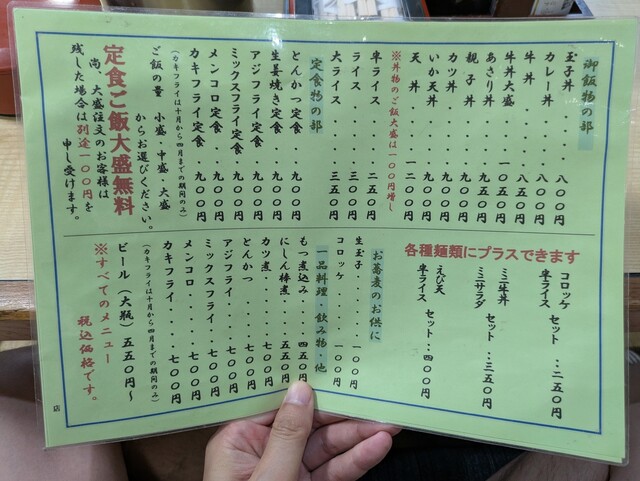 御飯物の部
玉子丼・・・・八〇〇円
カレー丼・・・八〇〇円
牛丼・・・・・八五〇円
牛丼大盛・・一〇五〇円
あさり丼・・・九五〇円
親子丼・・・・九〇〇円
カツ丼・・・・九〇〇円
いか天丼・・・九〇〇円
天丼・・・・一二〇〇円
※丼物のご飯大盛は一〇〇円増し
半ライス・・・二五〇円
ライス・・・・三〇〇円
大ライス・・・三五〇円
定食物の部
とんかつ定食・・九〇〇円
生姜焼き定食・・九〇〇円
アジフライ定食・九〇〇円
ミックスフライ定食・九〇〇円
メンコロ定食・・九〇〇円
カキフライ定食・九〇〇円
(カキフライは十月から四月までの期間のみ)
ご飯の量　小盛・中盛・大盛
からお選びください。
定食ご飯大盛無料
尚、大盛注文のお客様は
残した場合は別途一〇〇円を
申し受けます。
各種麺類にプラスできます
コロッケ
半ライス　セット・・二五〇円
ミニ牛丼
ミニサラダ　セット・・三五〇円
えび天
半ライス　セット・・四〇〇円
お蕎麦のお供に
生玉子・・・・一〇〇円
コロッケ・・・一〇〇円
一品料理・飲み物・他
もつ煮込み・・四五〇円
にしん棒煮・・五五〇円
カツ煮・・・・七〇〇円
とんかつ・・・七〇〇円
アジフライ・・七〇〇円
ミックスフライ・・七〇〇円
メンコロ・・・七〇〇円
カキフライ・・七〇〇円
(カキフライは十月から四月までの期間のみ)
ビール(大瓶)五五〇円〜
※すべてのメニュー
税込価格です。
店